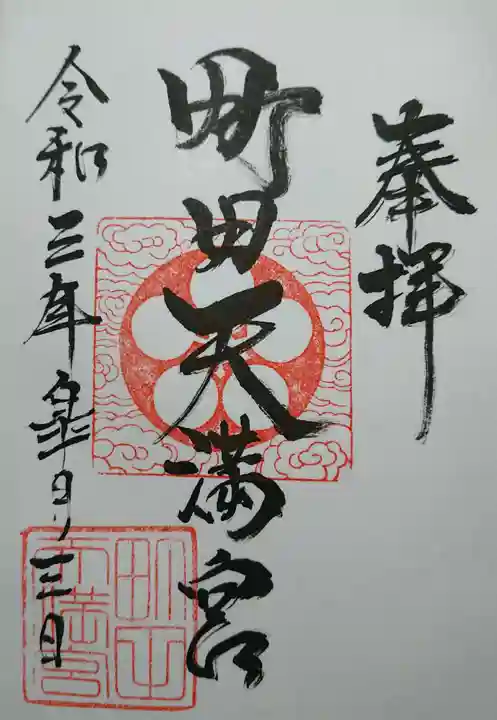 奉拝
町田天満宮
令和三年皐月三日
町田
天満宮